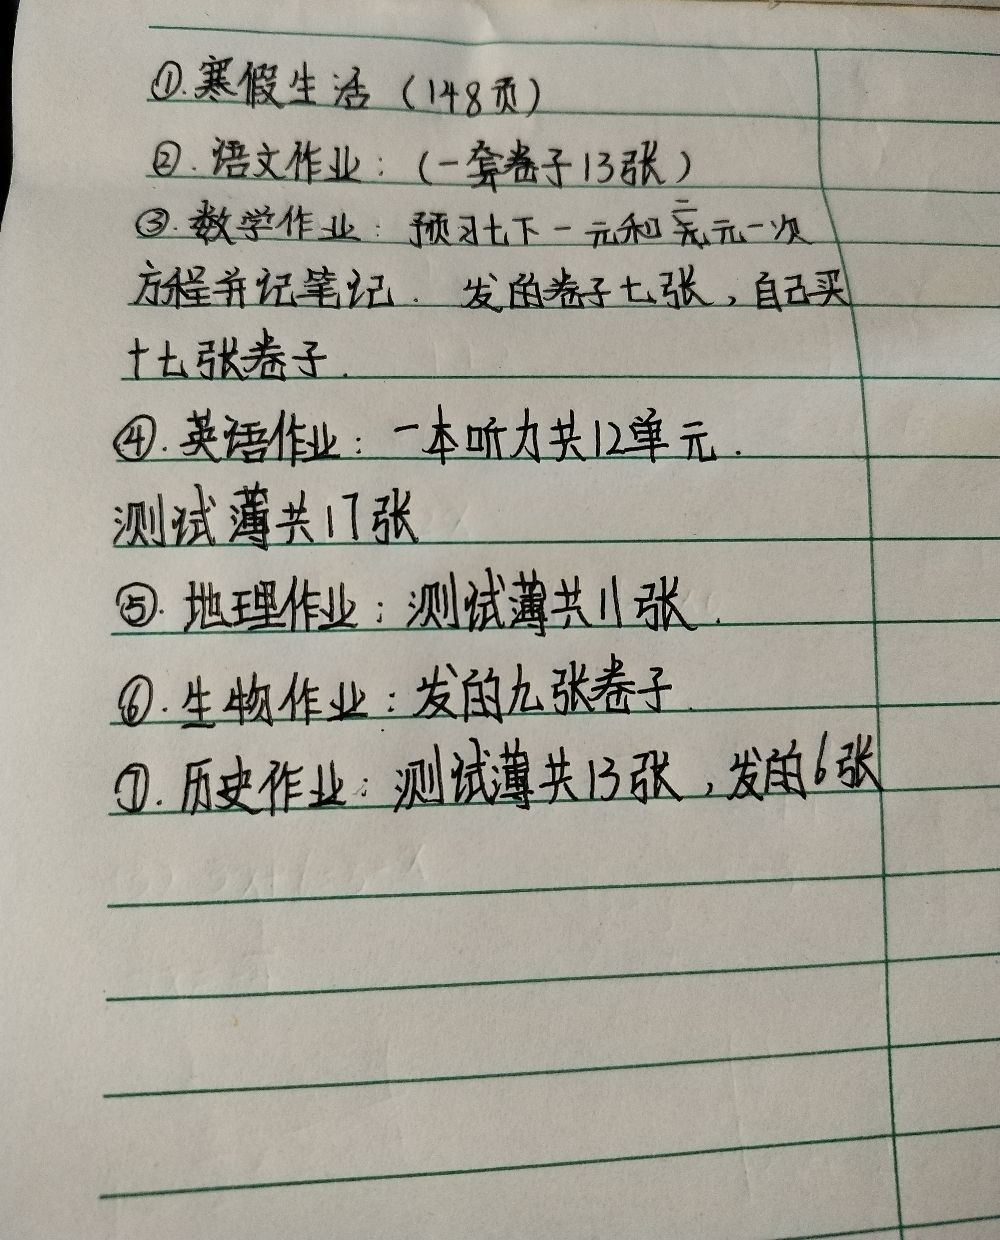 ①.寒假生活（148页）
②.语文作业：（一套卷子13张）
③.数学作业：预习七下一元和二元一次
方程并记笔记.发的卷子七张，自己买
十七张卷子.
④.英语作业：一本听力共12单元.
测试薄共17张
⑤.地理作业：测试薄共11张.
⑥.生物作业：发的九张卷子.
⑦.历史作业：测试薄共13张，发的6张